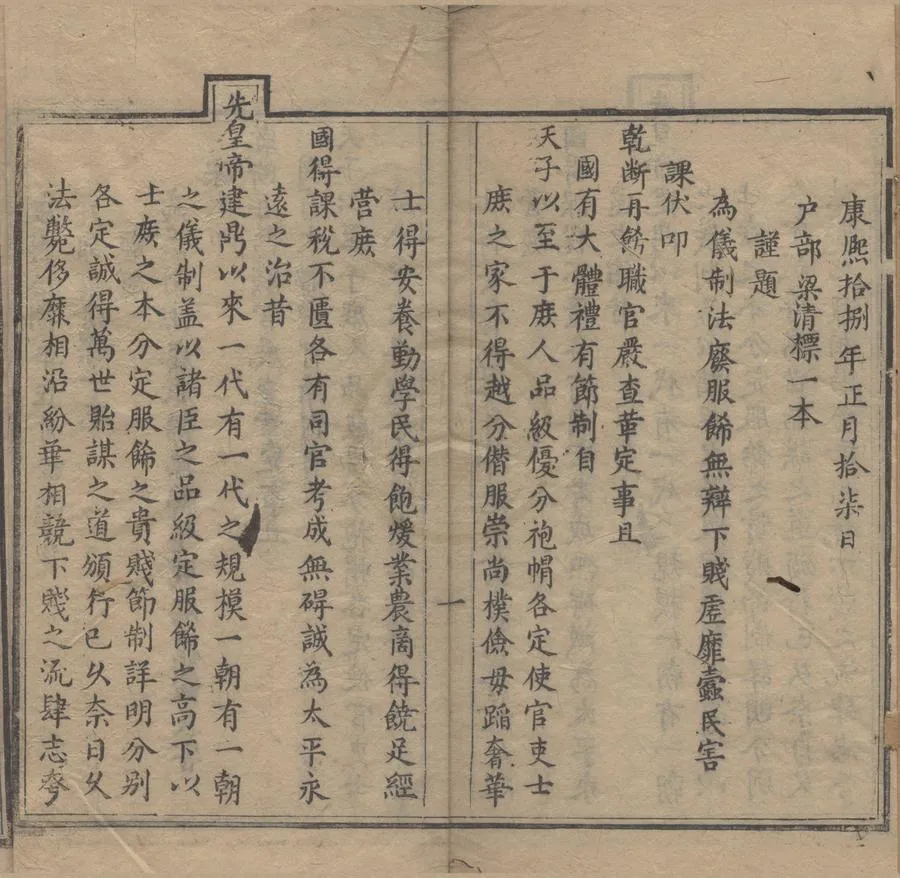 康熙拾捌年正月拾柒日
户部梁清標一本
謹題
為儀制法廢服餙無辯下賤虛靡蠹民害
課伏叩
乾断再餙職官嚴查華定事且
國有大體禮有節制自
天子以至于庻人品級優分袍帽各定使官吏士
庻之家不得越分僭服崇尚樸儉毋蹈奢華
一
士得安養勤學民得飽煖業農商得饒足經
营庻
國得課稅不匱各有司官考成無碍誠為太平永
遠之治昔
先皇帝建鼎以來一代有一代之規模一朝有一朝
之儀制盖以諸臣之品級定服餙之高下以
士庻之本分定服餙之貴賤節制詳明分别
各定誠得萬世貽謀之道頒行已久奈日久
法斃侈靡相沿紛華相競下賤之流肆志奢